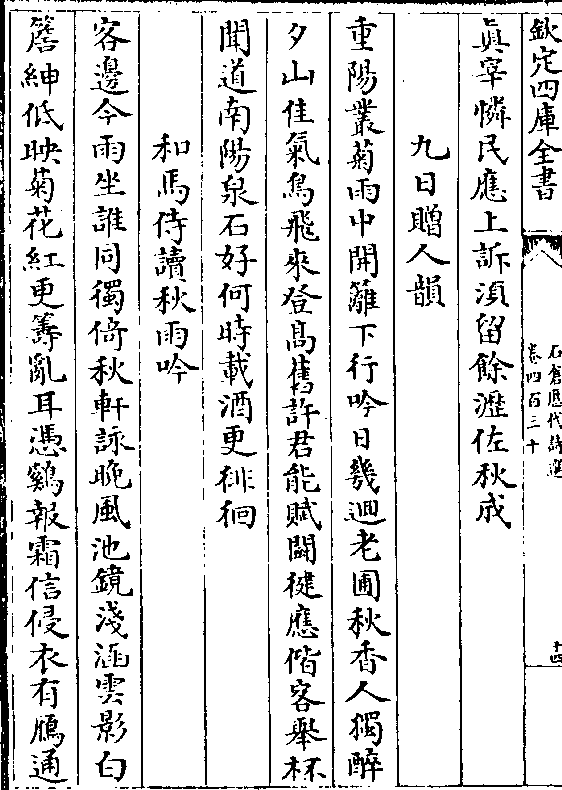 欽定四庫全書
石倉歷代詩選
卷四百三十
十四
真宰憐民應上訴湏留餘瀝佐秋成
九日贈人韻
重陽叢菊雨中開籬下行吟日幾迴老圃秋香人獨醉
夕山佳氣鳥飛來登髙舊許君能賦鬭健應偕客舉杯
聞道南陽泉石好何時載酒更徘徊
和馬侍讀秋雨吟
客邊今雨坐誰同獨倚秋軒詠晚風池鏡淺涵雲影白
簷紳低映菊花紅更籌亂耳憑鷄報霜信侵衣有鴈通